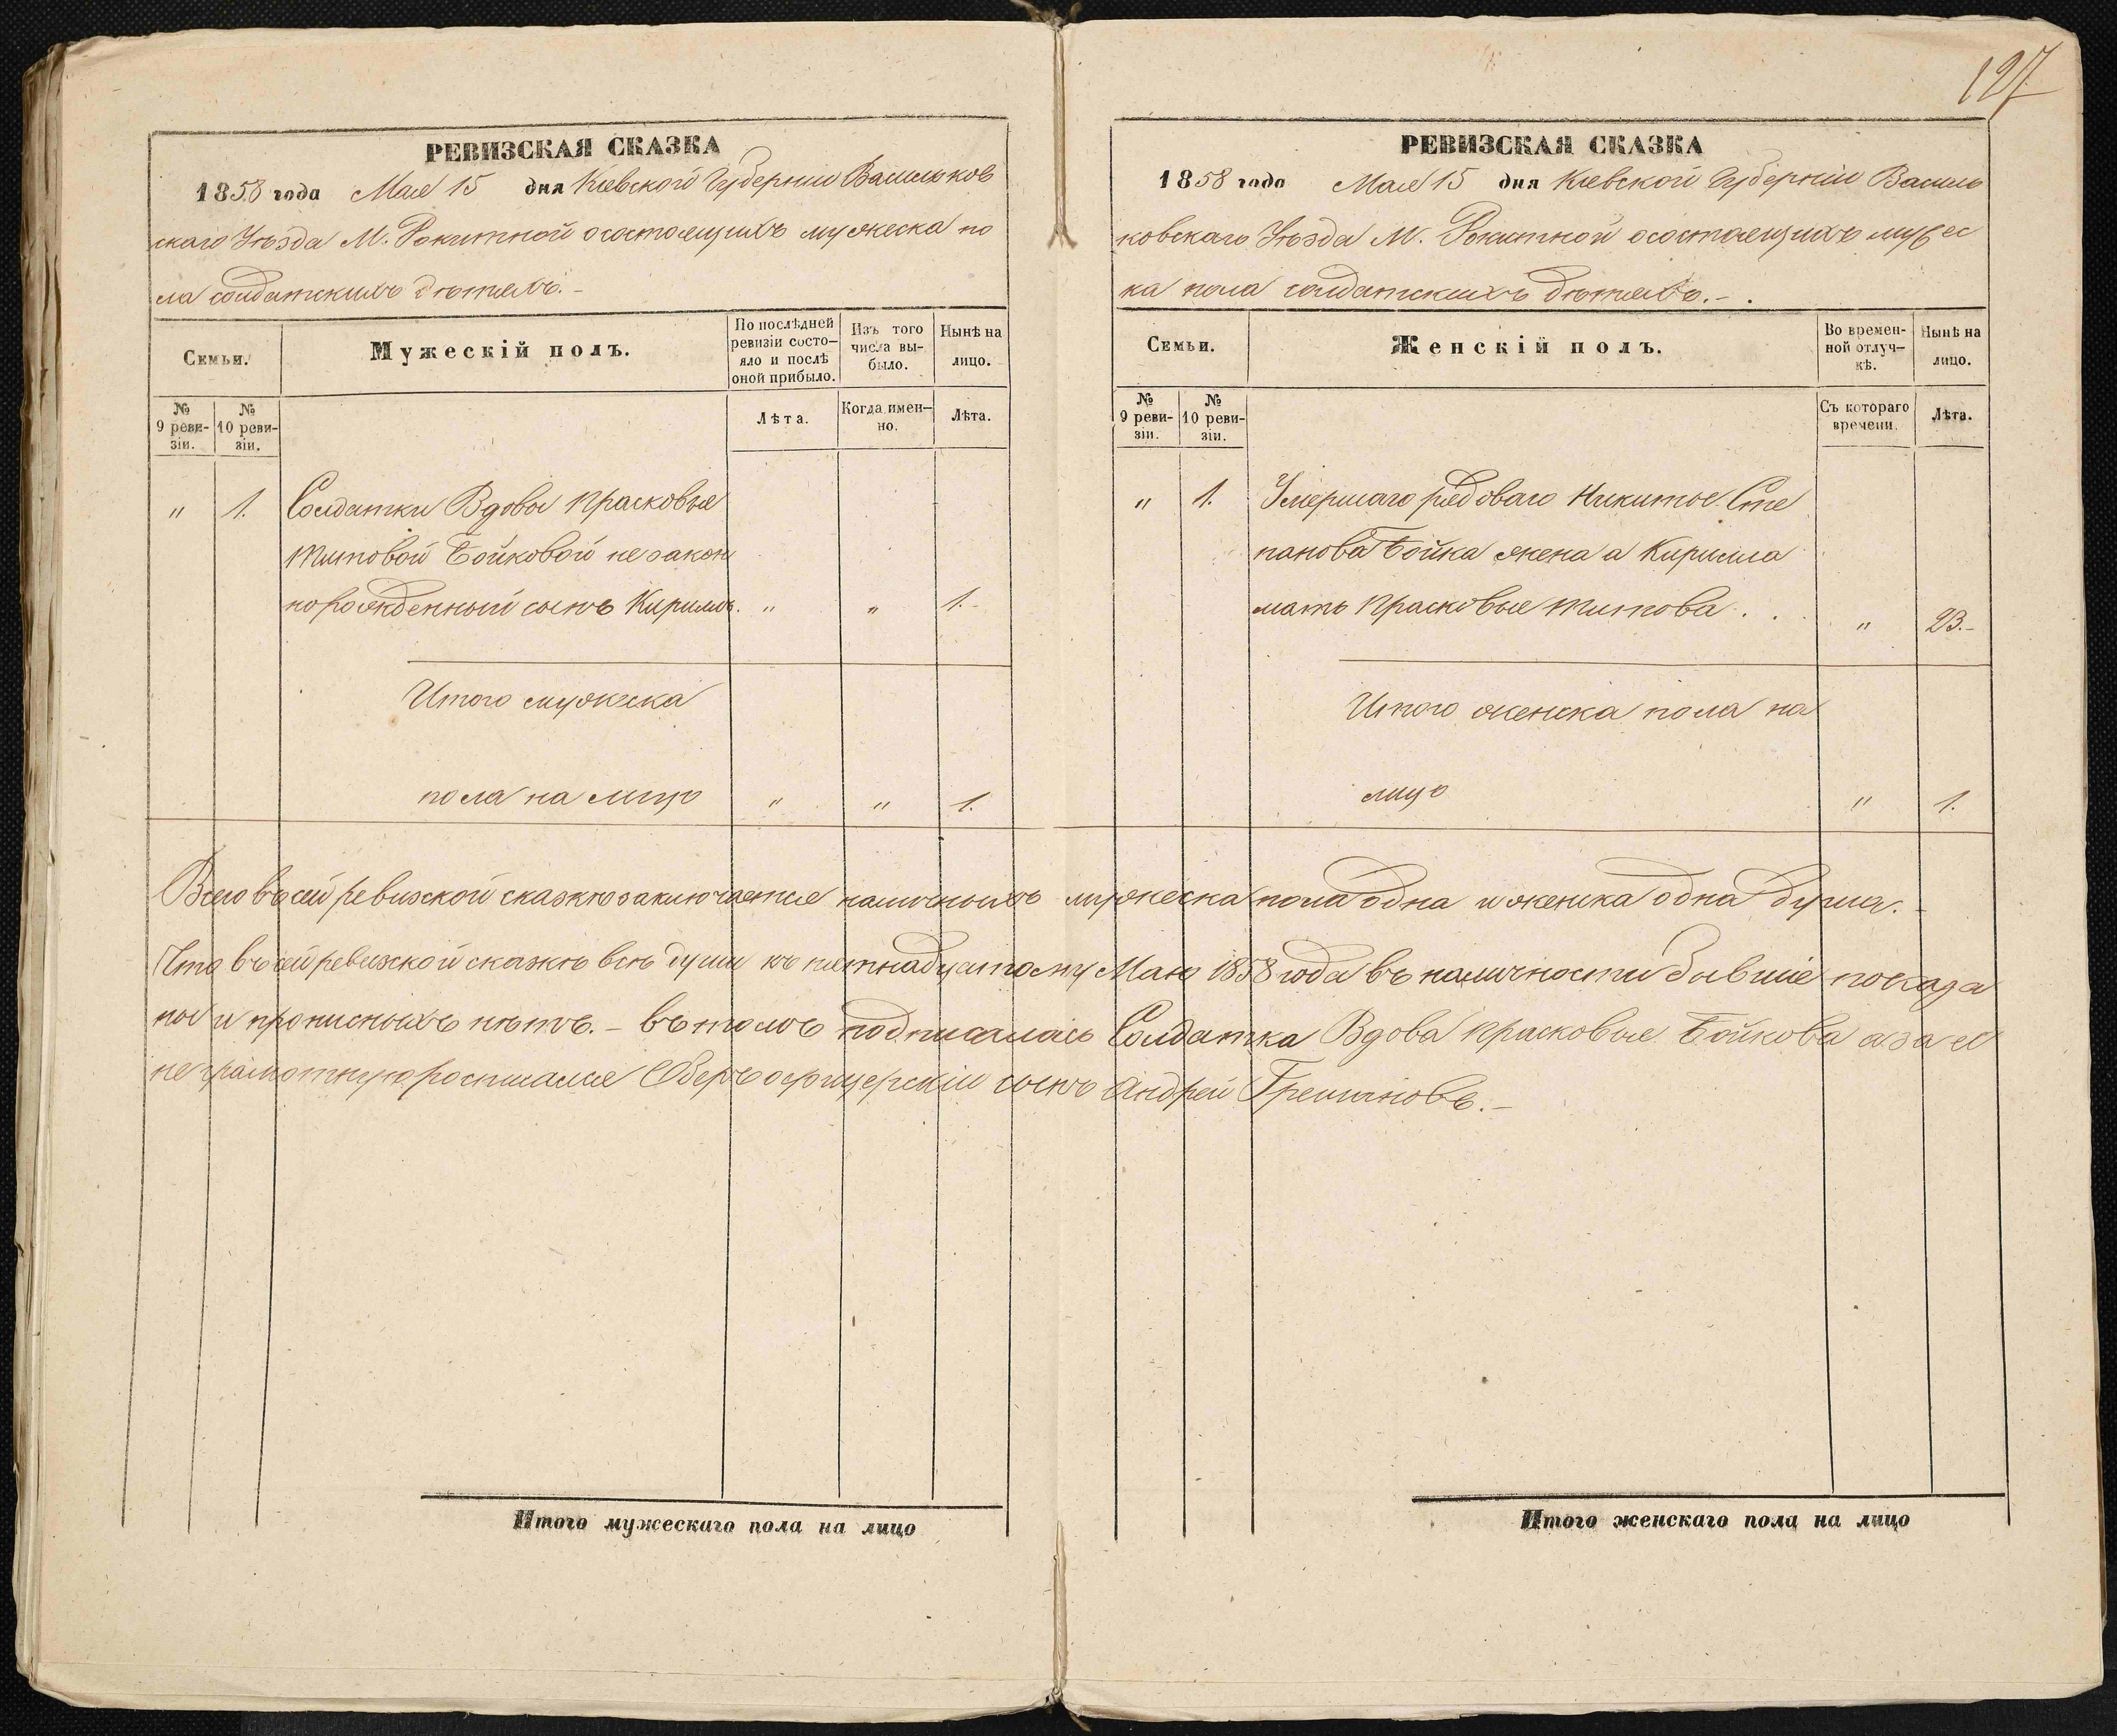 127
РЕВИЗСКАЯ СКАЗКА
1858 года Мая 15 дня Кіевской Губерніи Васильков
скаго Уѣзда М. Рокитной осостоящихъ мужеска по
ла солдатскихъ дѣтяхъ.-
Семьи.
Мужескій полъ.
По послѣдней ревизіи состо-
яло и послѣ оной прибыло.
Изъ того числа вы-
было.
Нынѣ на лицо.
№ 9 реви-
зіи.
№ 10 реви-
зіи.
Лѣта.
Когда имен-
но.
Лѣта.
" 1. Солдатки Вдовы Прасковьи
Титовой Бойковой незакон
норожденный сынъ Кирилъ. " " 1.-
Итого мужеска
пола на лицо " " 1.
РЕВИЗСКАЯ СКАЗКА
1858 года Мая 15 дня Кіевской Губерніи Василь
ковскаго Уѣзда М. Рокитной осостоящихъ мужес
ка пола солдатскихъ дѣтяхъ.-.
Семьи.
Женскій полъ.
Во времен-
ной отлуч-
кѣ.
Нынѣ на лицо.
№ 9 реви-
зіи.
№ 10 реви-
зіи.
Съ котораго времени.
Лѣта.
" 1. Умершаго рядоваго Никиты Сте
панова Бойка жена а Кирилла
мать Прасковья Титова . . " 23.-
Итого женска пола на
лицо " 1.
Всего въ сей ревизской сказкѣ заключается наличныхъ мужеска пола одна и женска одна душа.-
Что въ сей ревизской сказкѣ всѣ души къ пятнадцатому Маю 1858 года въ наличности бывшіе показа
ны и прописныхъ нѣтъ.- въ томъ подписалась Солдатка Вдова Прасковья Бойкова а за ея
неграмотную роспмсался Оберъ офицерскій сынъ Андрей
Итого мужескаго пола на лицо
Итого женскаго пола на лицо